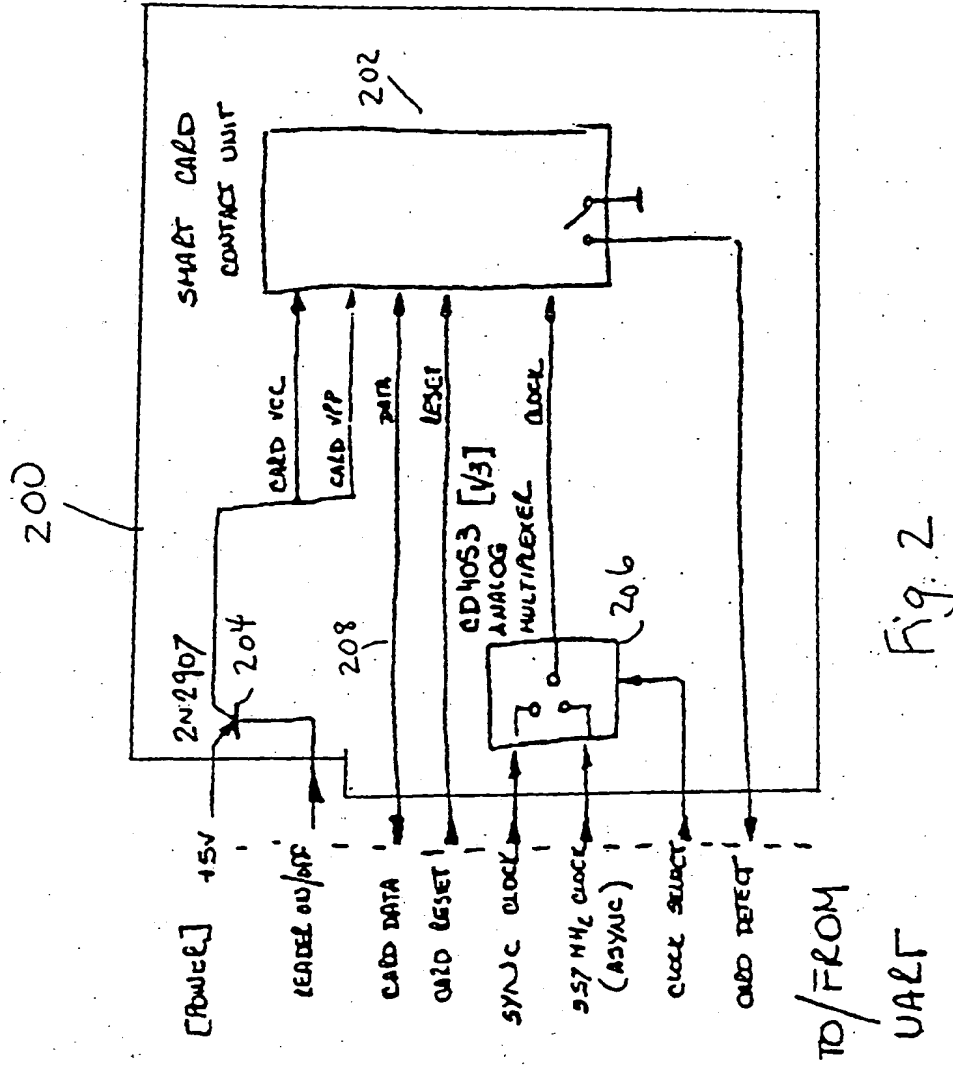 200
SMART CARD
CONTACT UNIT
202
2N2907
204
CARD VCC
CARD VPP
DATA
RESET
CLOCK
208
CD4053 [1/3]
ANALOG
MULTIPLEXER
206
[POWER]
+5V
READER ON/OFF
CARD DATA
CARD RESET
SYNC CLOCK
(ASYNC)
CLOCK SELECT
CARD DETECT
TO/FROM
UART
Fig. 2